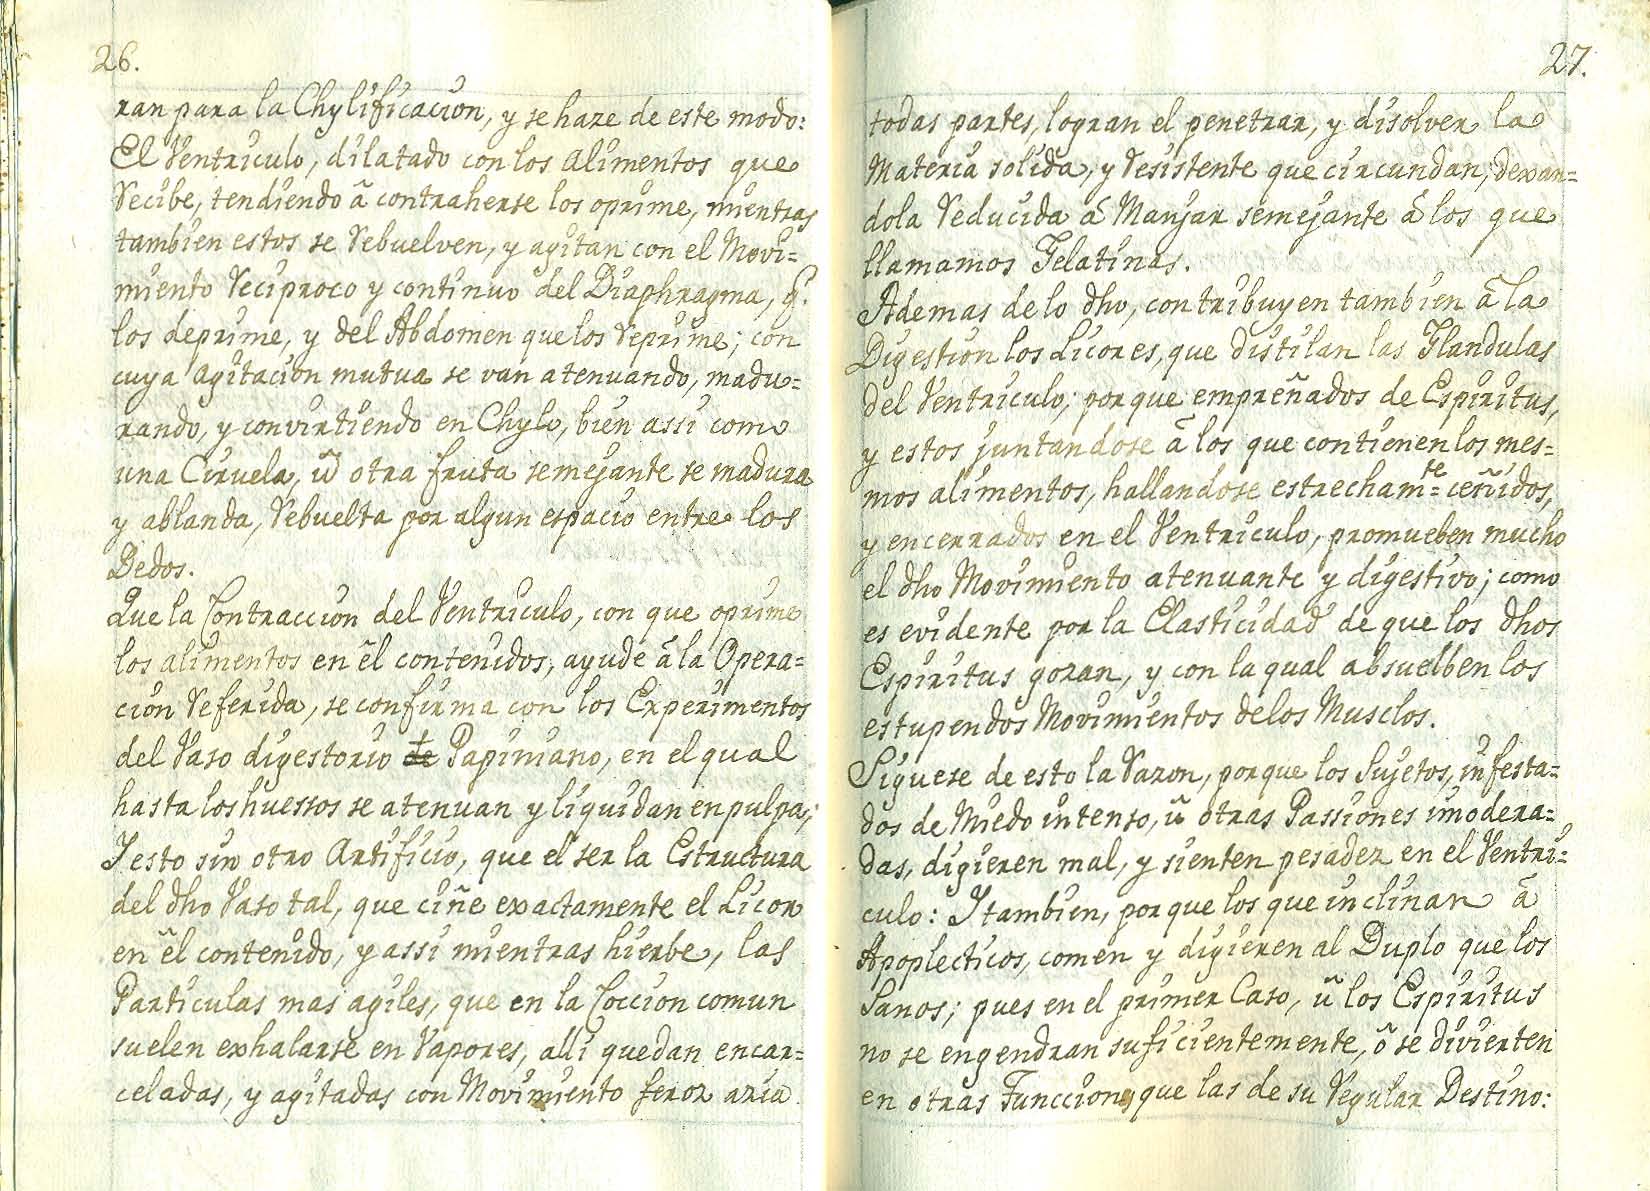 26.
ran para la Chylificacion, y se haze de este modo:
El Ventriculo, dilatado con los alimentos que
recibe, tendiendo â contraherse los oprime, mientras
tambien estos se rebuelven, y agitan con el Movi=
miento reciproco y continuo del Diaphragma, q.
los deprime, y del Abdomen que los reprime; con
cuya agitacion mutua se van atenuando, madu=
rando, y convirtiendo en Chylo, bien assi como
una Ciruela, û otra fruta semejante se madura
y ablanda, rebuelta por algun espacio entre los
Dedos.
Que la Contraccion del Ventriculo, con que oprime
los alimentos en êl contenidos, ayude â la Opera=
cion referida, se confirma con los Experimentos
del Vaso digestorio de Papiniano, en el qual
hasta los huessos se atenuan y liquidan en pulpa;
Y esto sin otro Artificio, que el ser la Estructura
del dho Vaso tal, que ciñe exactamente el Licor
en êl contenido, y assi mientras hierbe, las
Particulas mas agiles, que en la Coccion comun
suelen exhalarse en Vapores, alli quedan encar=
celadas, y agitadas con Movimiento feroz azia
27.
todas partes, logran el penetrar, y disolver la
Materia solida, y resistente que circundan, dexan=
dola reducida â Manjar semejante â los que
llamamos Jelatinas.
Ademas de lo dho, contribuyen tambien â la
Digestion los Licores, que distilan las Glandulas
del Ventriculo; porque empreñados de Espiritus,
y estos juntandose â los que contienen los mes=
mos alimentos, hallandose estrecham=te ceñidos,
y encerrados en el Ventriculo, promueben mucho
el dho Movimiento atenuante y digestivo; como
es evidente por la Elasticidad de que los dhos
Espiritus gozan, y con la qual absuelben los
estupendos Movimientos de los Musclos.
Siguese de esto la razon, porque los Sujetos, infesta=
dos de Miedo intenso, û otras Passiones imodera=
das, digieren mal, y sienten pesadez en el Ventri=
culo: Y tambien, porque los que inclinan â
Apoplecticos, comen y digieren al Duplo que los
Sanos; pues en el primer Caso, û los Espiritus
no se engendran suficientemente, ô se divierten
en otras Funcciones que las de su regular Destino: